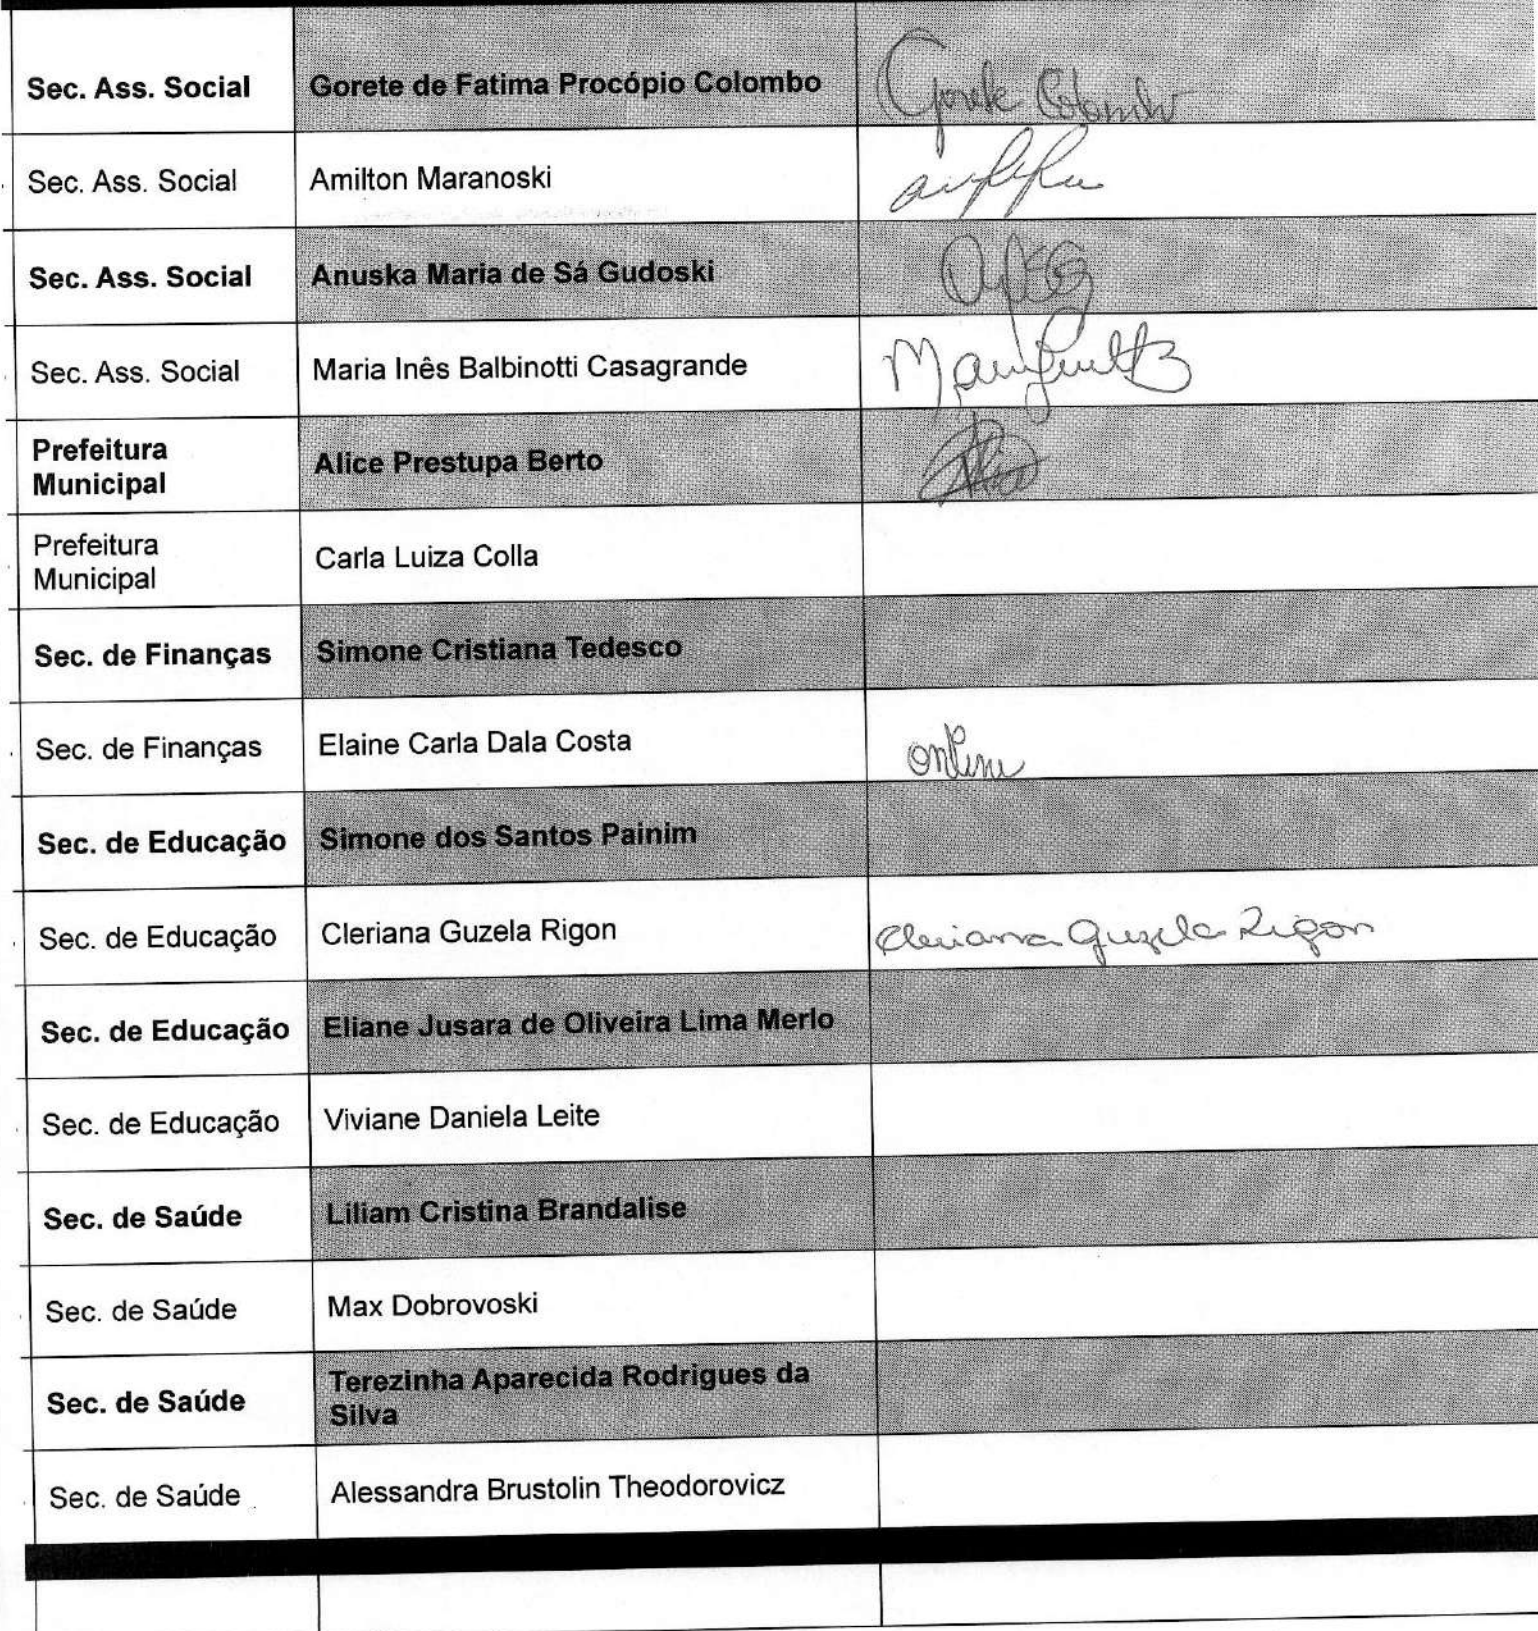 Sec. Ass. Social Gorete de Fatima Procópio Colombo Gorete Colombo
Sec. Ass. Social Amilton Maranoski
Sec. Ass. Social Anuska Maria de Sá Gudoski
Sec. Ass. Social Maria Inês Balbinotti Casagrande
Prefeitura
Municipal Alice Prestupa Berto
Prefeitura
Municipal Carla Luiza Colla
Sec. de Finanças Simone Cristiana Tedesco
Sec. de Finanças Elaine Carla Dala Costa online
Sec. de Educação Simone dos Santos Painim
Sec. de Educação Cleriana Guzela Rigon Cleriana Guzela Rigon
Sec. de Educação Eliane Jusara de Oliveira Lima Merlo
Sec. de Educação Viviane Daniela Leite
Sec. de Saúde Liliam Cristina Brandalise
Sec. de Saúde Max Dobrovoski
Sec. de Saúde Terezinha Aparecida Rodrigues da
Silva
Sec. de Saúde Alessandra Brustolin Theodorovicz